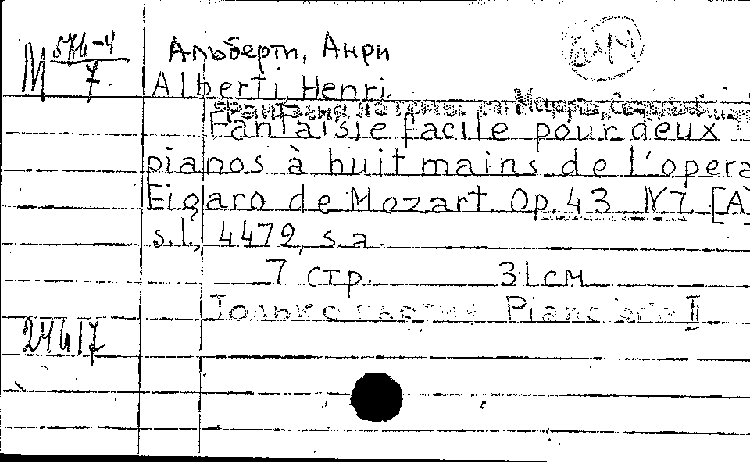 M 574-4/7
Альберти, Анри
Alberti Henri
Fantaisie facile pour deux
pianos à huit mains de l'opera
Figaro de Mozart Op. 43 N7 [A]
s.l., 4479, s.a.
7 стр. 31 см
Только Piano II